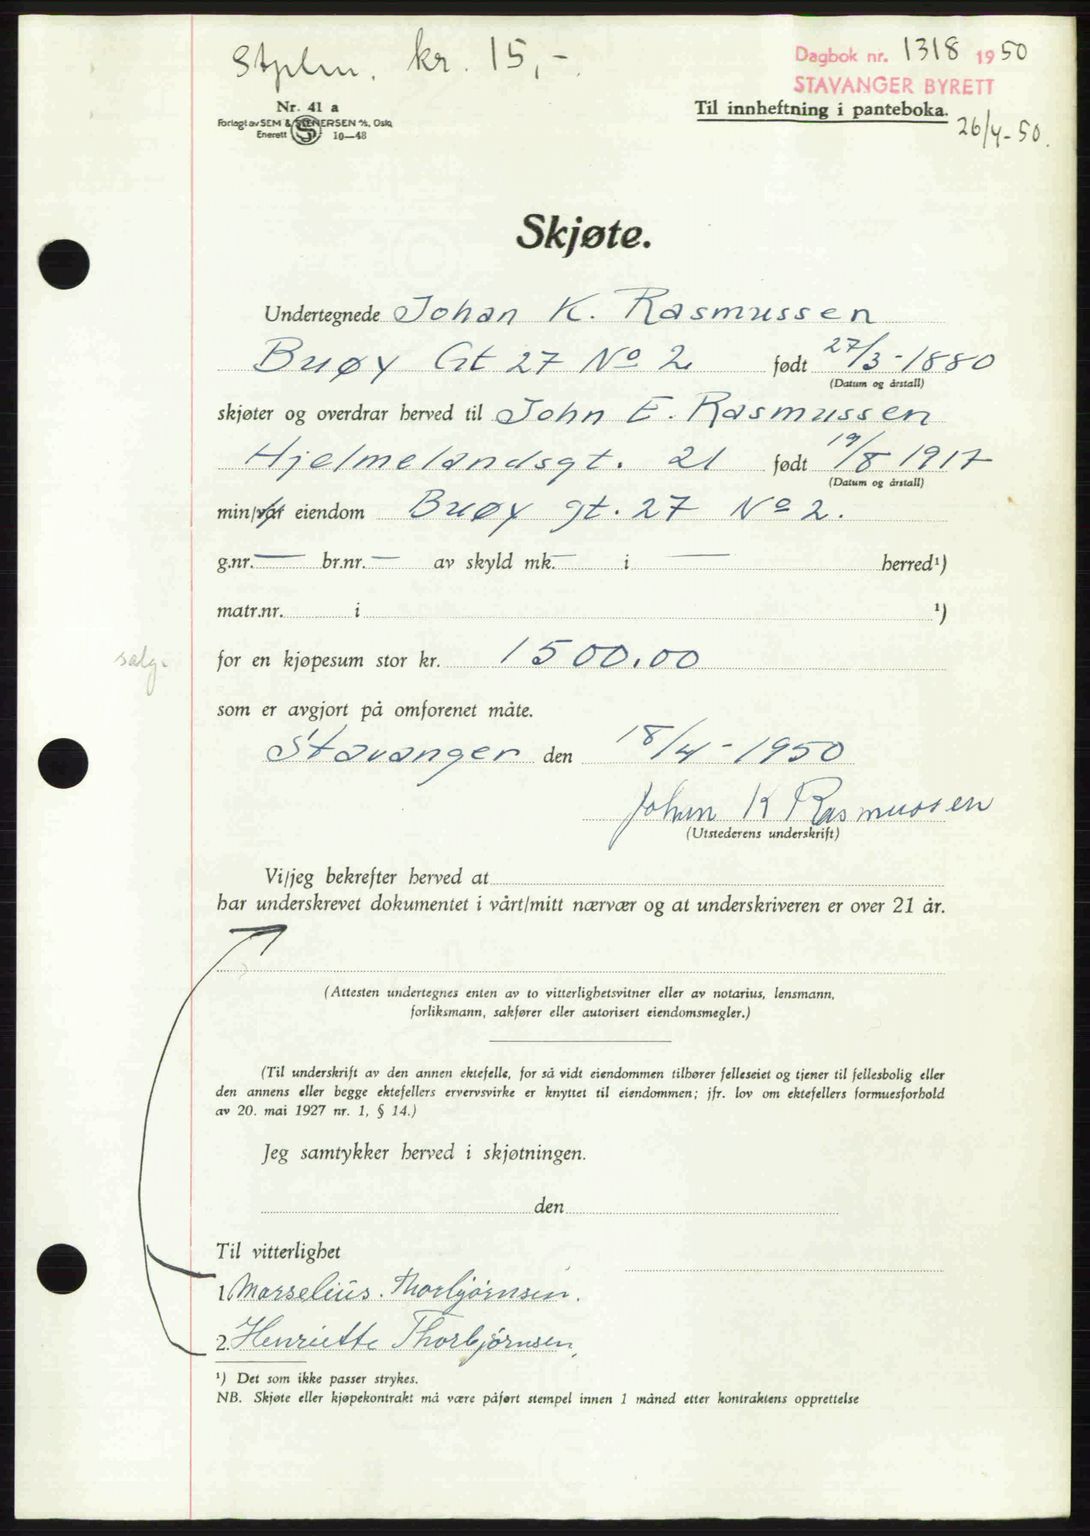 Stplm. kr. 15,-
Dagbok nr. 1318 1950
STAVANGER BYRETT
Nr. 41 a
Til innheftning i panteboka.
Forlagt av SEM & STENERSEN A/S, Oslo
Enerett 10—48
26/4-50.
Skjøte.
Undertegnede Johan K. Rasmussen
Buøy Gt 27 No 2 født 27/3-1880
(Datum og årstall)
skjøter og overdrar herved til John E. Rasmussen
Hjelmelandsgt. 21 født 19/8 1917
(Datum og årstall)
min/vår eiendom Buøy gt. 27 No 2.
g.nr. — br.nr. — av skyld mk. — i — herred¹)
matr.nr. i ¹)
salg.
for en kjøpesum stor kr. 1500.00
som er avgjort på omforenet måte.
Stavanger den 18/4-1950
Johan K Rasmussen
(Utstederens underskrift)
Vi/jeg bekrefter herved at
har underskrevet dokumentet i vårt/mitt nærvær og at underskriveren er over 21 år.
(Attesten undertegnes enten av to vitterlighetsvitner eller av notarius, lensmann,
forliksmann, sakfører eller autorisert eiendomsmegler.)
(Til underskrift av den annen ektefelle, for så vidt eiendommen tilhører felleseiet og tjener til fellesbolig eller
den annens eller begge ektefellers ervervsvirke er knyttet til eiendommen; jfr. lov om ektefellers formuesforhold
av 20. mai 1927 nr. 1, § 14.)
Jeg samtykker herved i skjøtningen.
den
Til vitterlighet
1. Marselius. Thorbjørnsen.
2. Henriette Thorbjørnsen.
¹) Det som ikke passer strykes.
NB. Skjøte eller kjøpekontrakt må være påført stempel innen 1 måned etter kontraktens opprettelse